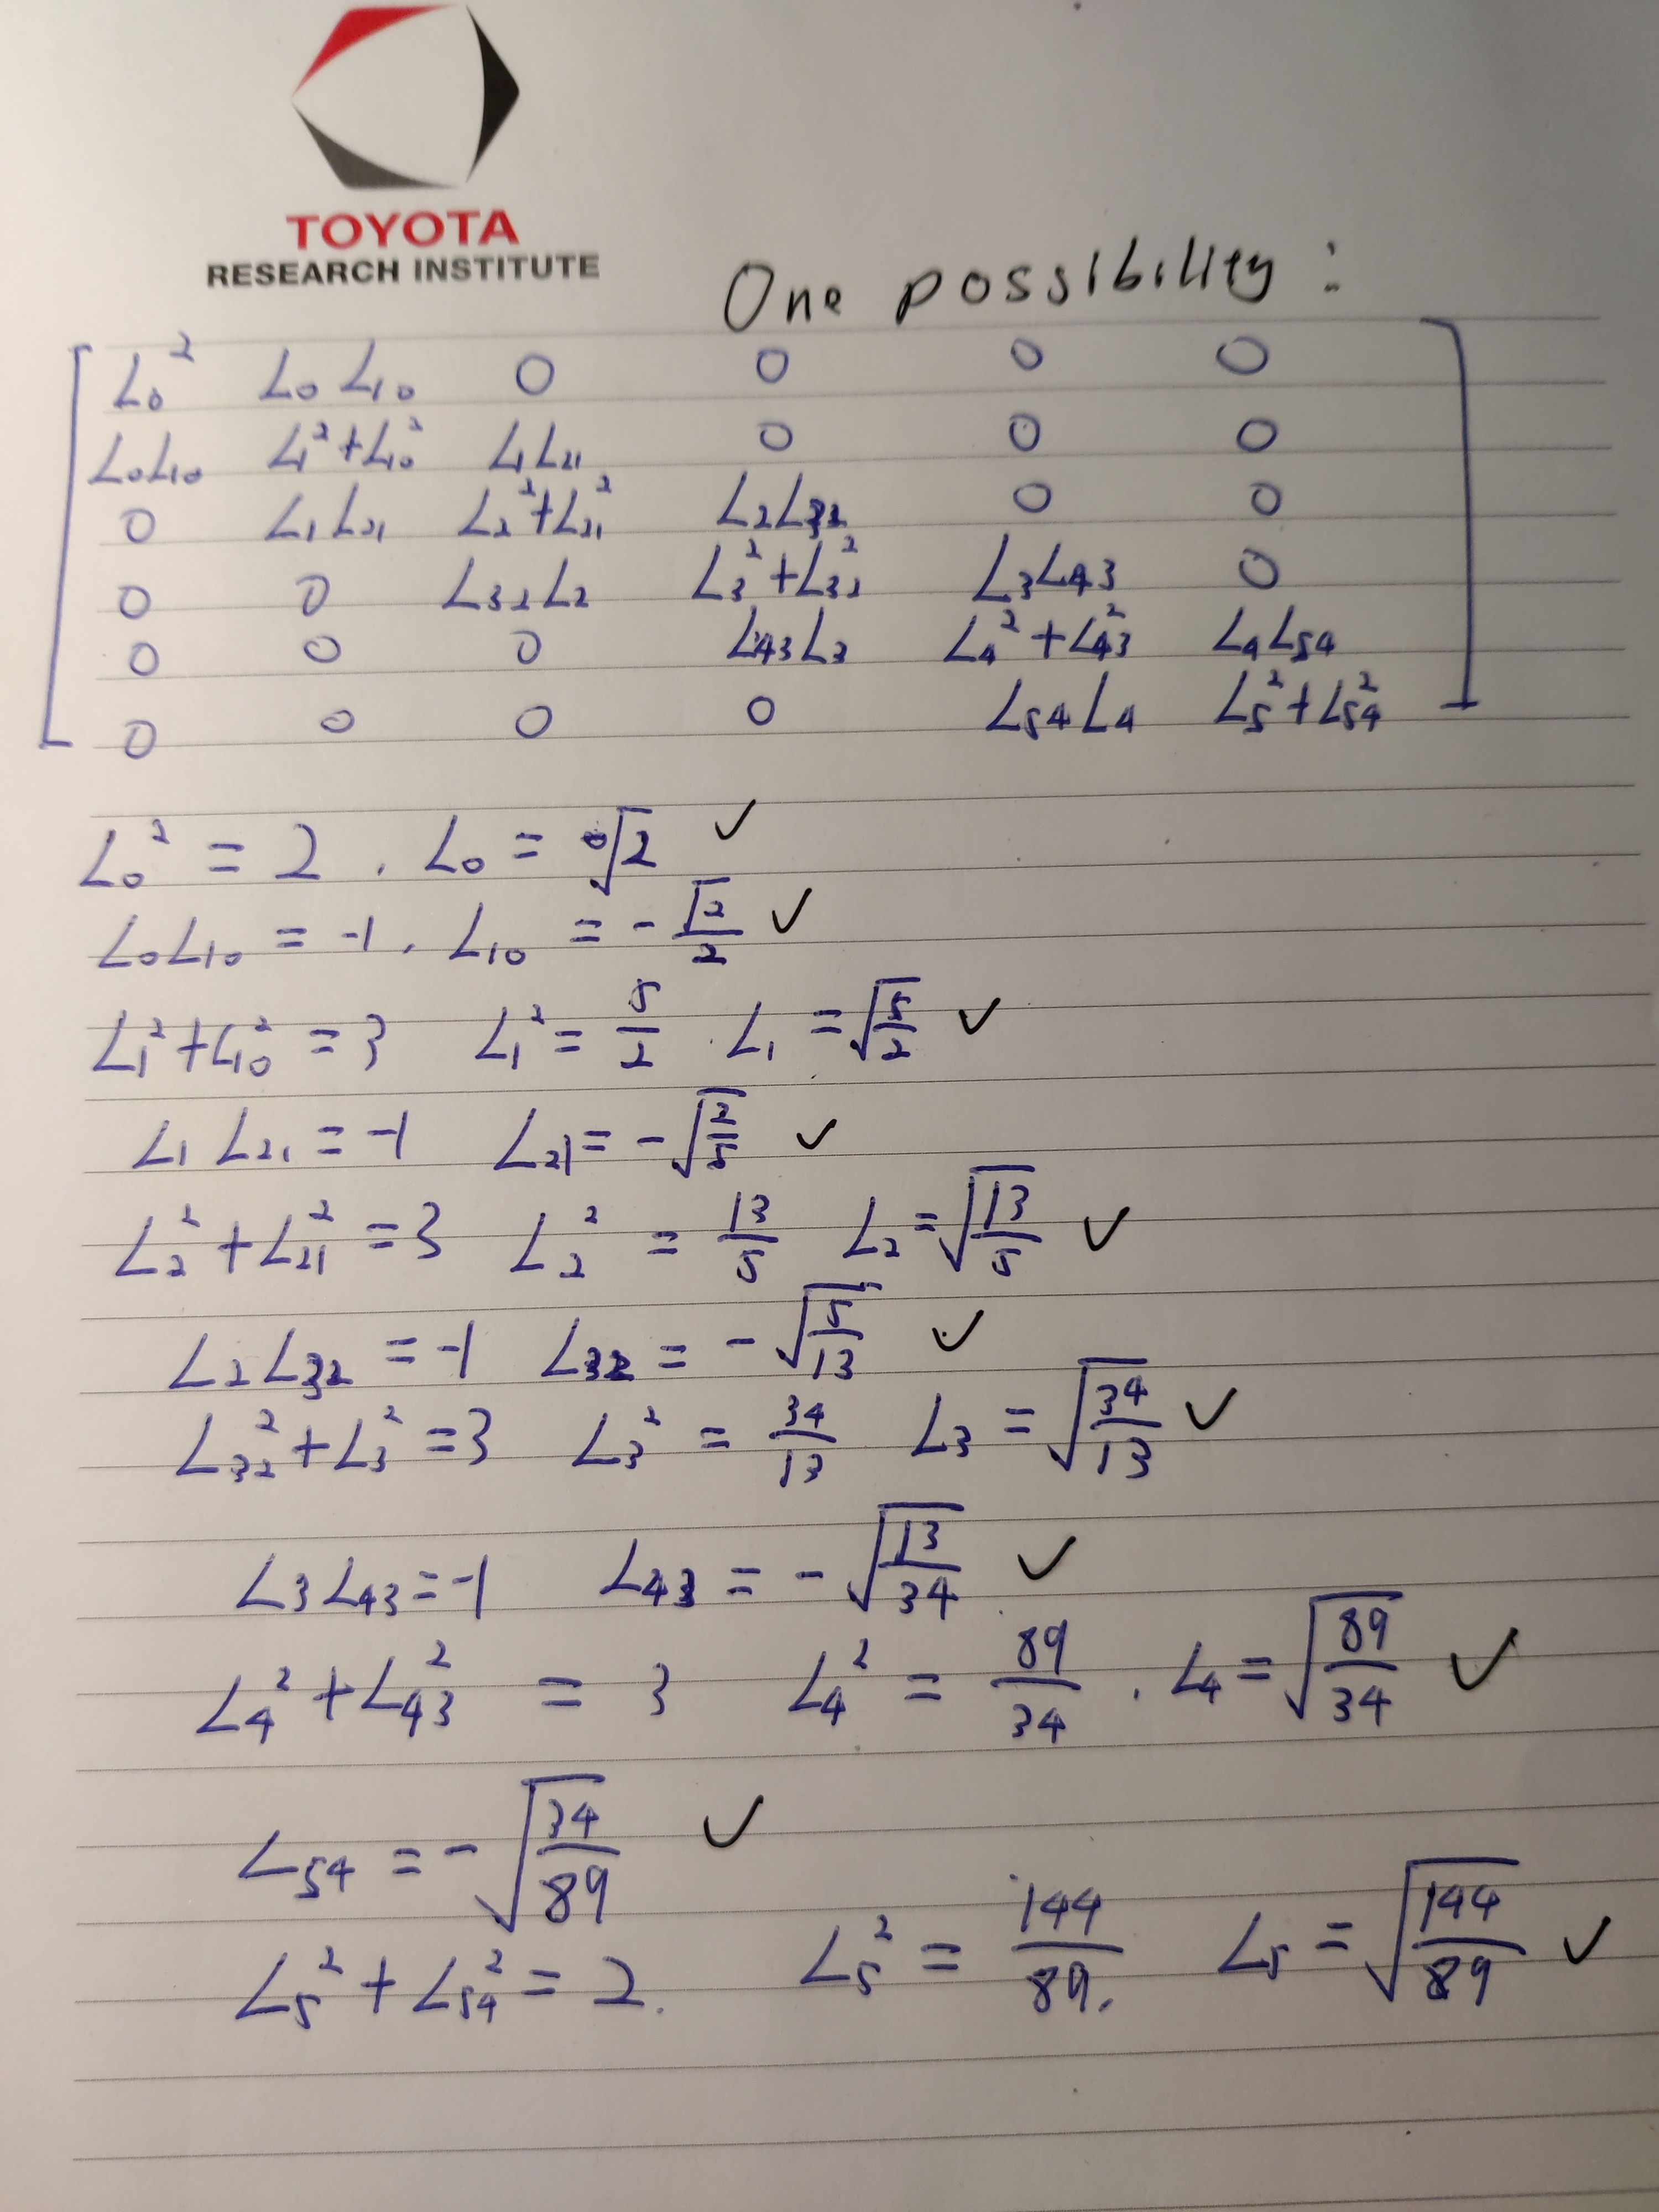 TOYOTA
RESEARCH INSTITUTE
One possibility :
L₀² L₀ L₁₀ 0 0 0 0
L₀L₁₀ L₁²+L₁₀² L₁L₂₁ 0 0 0
0 L₁L₂₁ L₂²+L₂₁² L₂L₃₂ 0 0
0 0 L₃₂L₂ L₃²+L₃₂² L₃L₄₃ 0
0 0 0 L₄₃L₃ L₄²+L₄₃² L₄L₅₄
0 0 0 0 L₅₄L₄ L₅²+L₅₄²
L₀² = 2 . L₀ = √2 ✓
L₀L₁₀ = -1 . L₁₀ = -√2/2 ✓
L₁²+L₁₀² = 3 L₁² = 5/2 . L₁ = √(5/2) ✓
L₁ L₂₁ = -1 L₂₁ = -√(2/5) ✓
L₂²+L₂₁² = 3 L₂² = 13/5 L₂ = √(13/5) ✓
L₂L₃₂ = -1 L₃₂ = -√(5/13) ✓
L₃₂²+L₃² = 3 L₃² = 34/13 L₃ = √(34/13) ✓
L₃L₄₃ = -1 L₄₃ = -√(13/34) ✓
L₄²+L₄₃² = 3 L₄² = 89/34 . L₄ = √(89/34) ✓
L₅₄ = -√(34/89) ✓
L₅²+L₅₄² = 2. L₅² = 144/89. L₅ = √(144/89) ✓